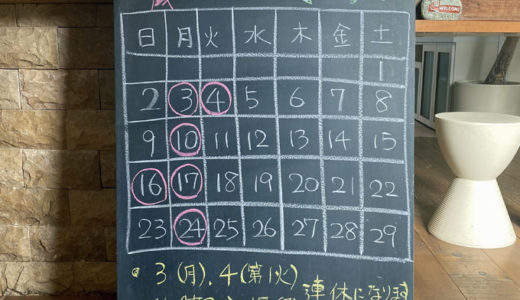 WELCOME
日 月 火 水 木 金 土
1
2 3 4 5 6 7 8
9 10 11 12 13 14 15
16 17 18 19 20 21 22
23 24 25 26 27 28 29
• 3 (月), 4 (第1火)
連休になります